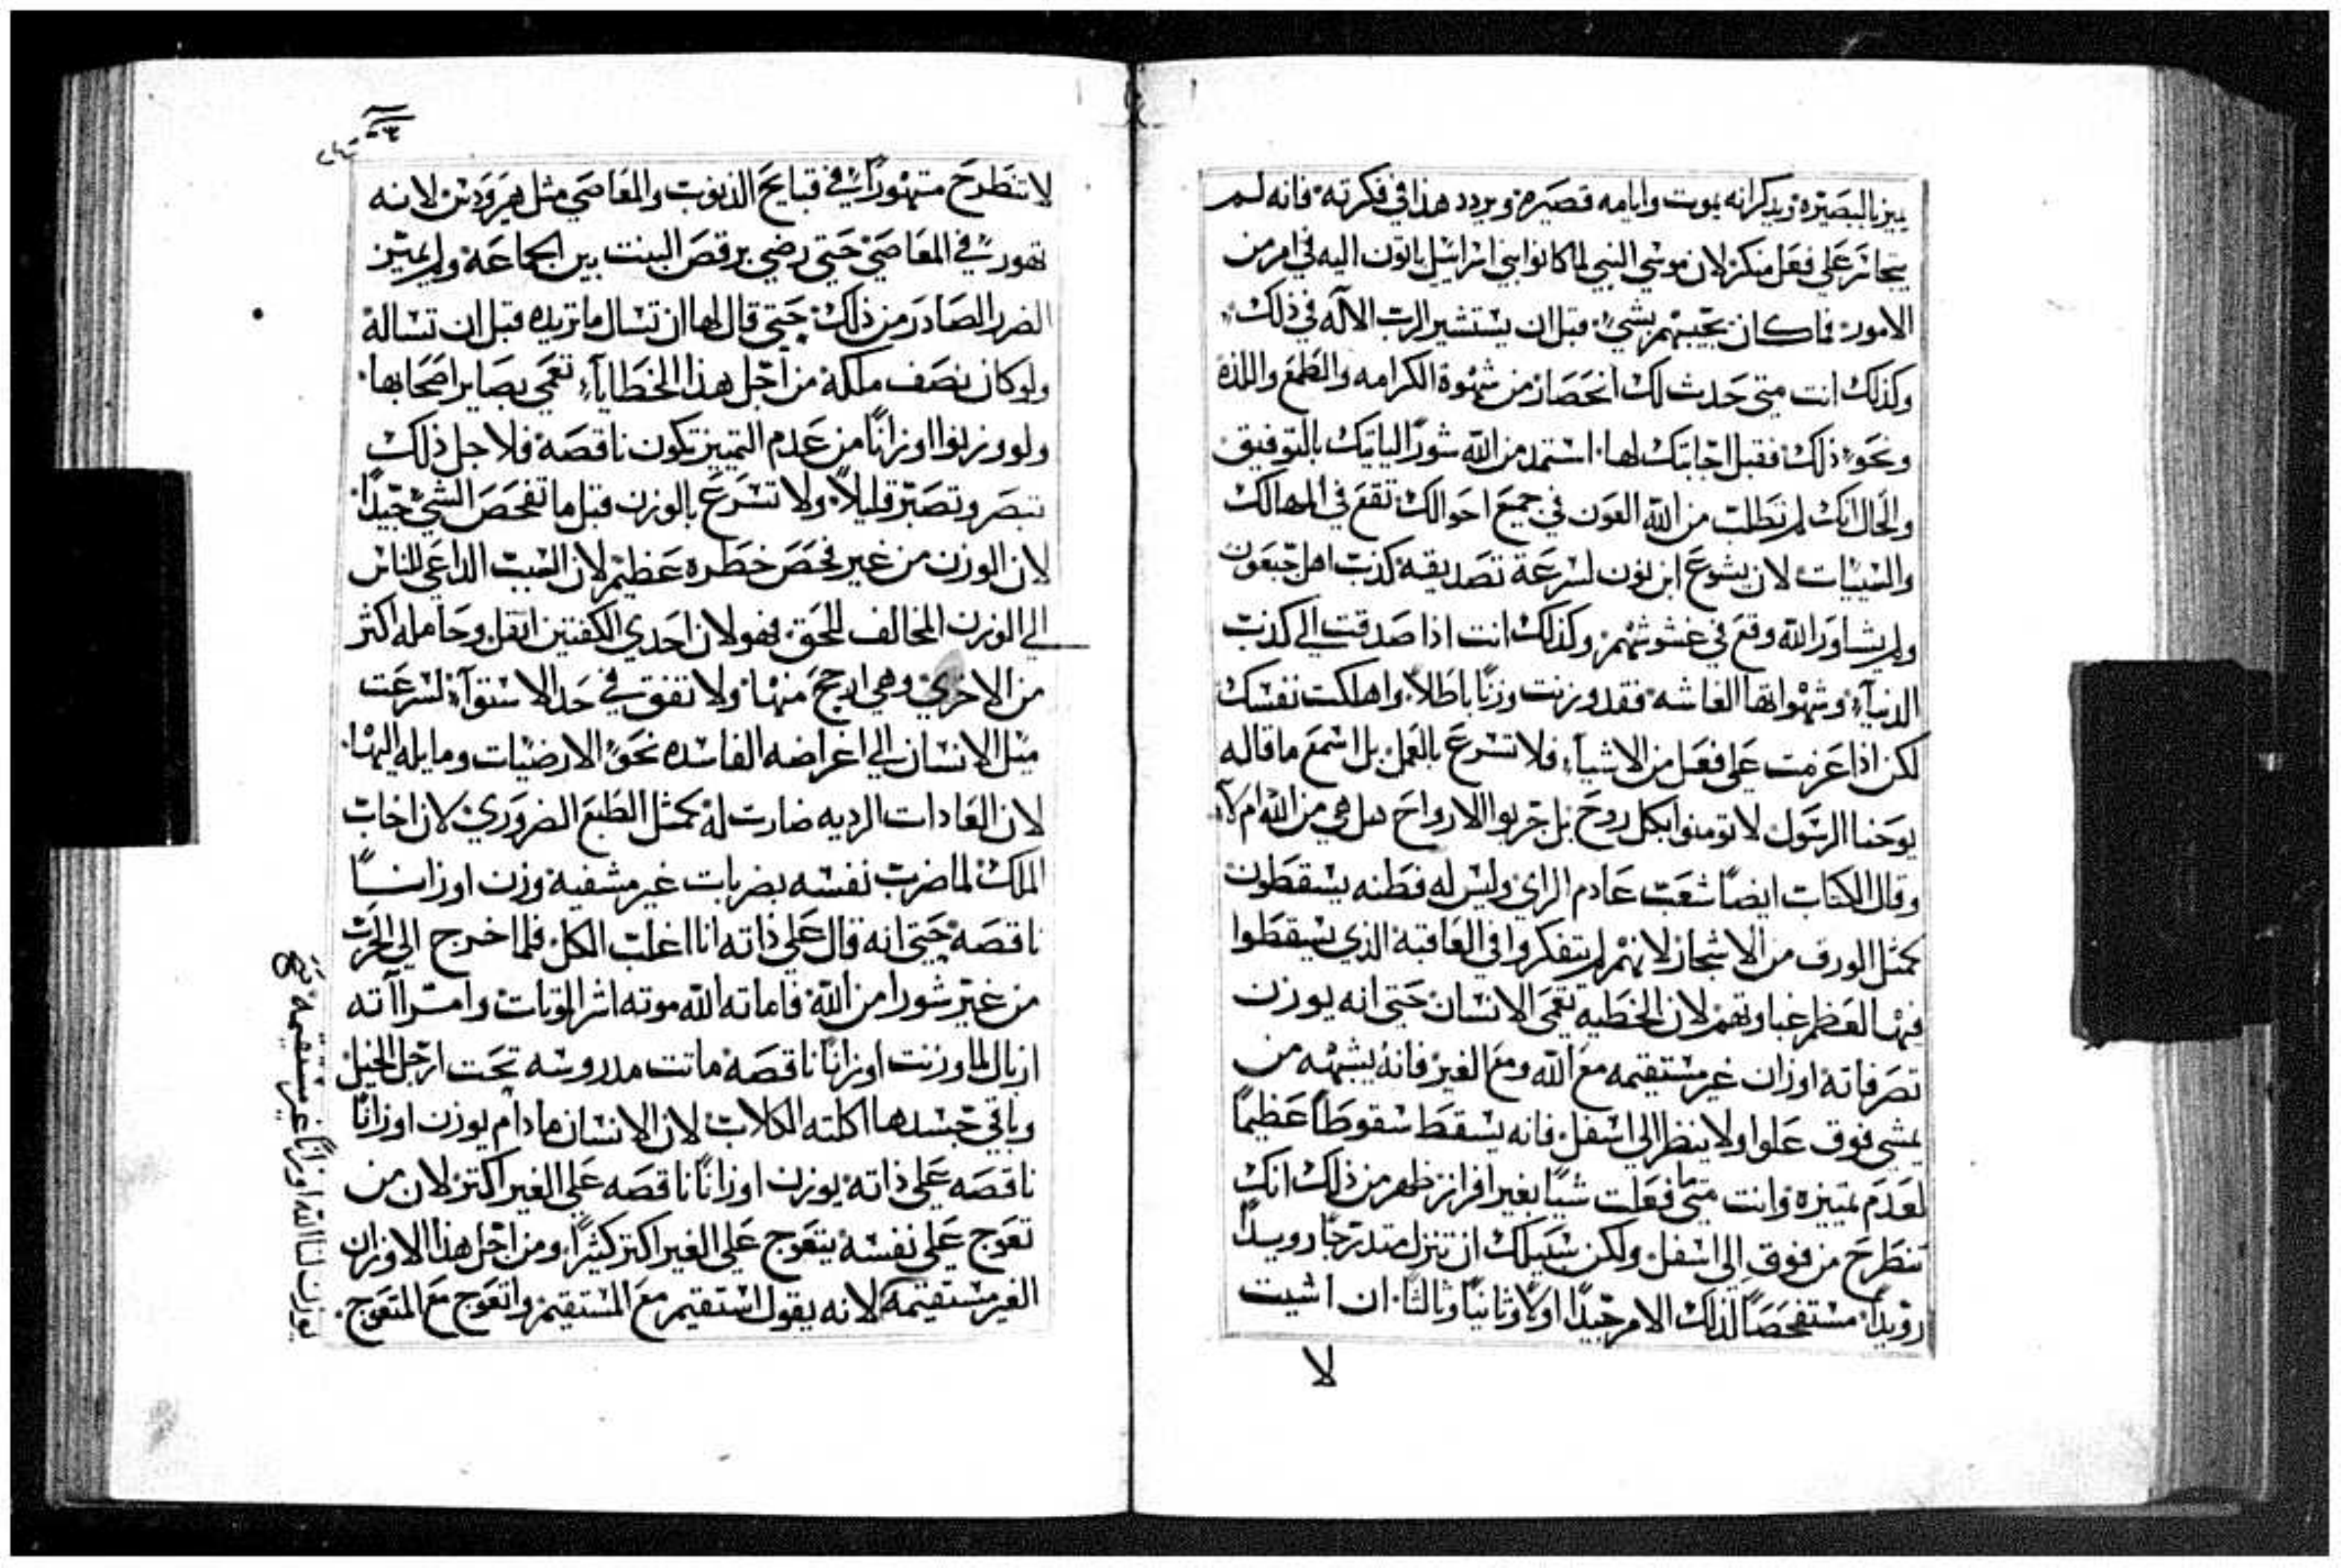 يميز بالبصيره ويذكر انه يموت وايامه قصيره ويردد هذا في فكرته فانه لم
يتجاسر علي فعل منكر لان موسي النبي لما كانوا بني اسراييل ياتون اليه في امر من
الامور فما كان يجيبهم بشيء قبل ان يستشير الرب الاله في ذلك
وكذلك انت متي حدث لك انحصار من شهوة الكرامه والطمع واللذه
ونحو ذلك فقبل اجابتك لها استمد من الله شورًا لياتيك بالتوفيق
والحال انك لم تطلب من الله العون في جميع احوالك تقع في المهالك
والسيات لان يشوع ابن نون لسرعة تصديقه كذب اهل جبعون
ولم يشاور الله وقع في غشوشهم وكذلك انت اذا صدقت الي كذب
الدنيآء وشهواتها الغاشه فقد وزنت وزنًا باطلاً واهلكت نفسك
لكن اذا عزمت علي فعل من الاشيآء فلا تسرع بالعمل بل اسمع ما قاله
يوحنا الرسول لا تومنوا بكل روح بل جربوا الارواح هل هي من الله ام لا
وقال الكتاب ايضًا شعب عادم الراي وليس له فطنه يسقطون
كمثل الورق من الاشجار لانهم لم يتفكروا في العاقبة الذي يسقطوا
فيها لعظم غباوتهم لان الخطيه تعمي الانسان حتي انه يوزن
تصرفاته اوزان غير مستقيمه مع الله ومع الغير فانه يشبه من
يمشي فوق علوا ولا ينظر الي اسفل فانه يسقط سقوطًا عظيمًا
لعدم تمييزه وانت متي ما فعلت شيًا بغير افراز ظهر من ذلك انك
تنطرح من فوق الي اسفل ولكن سبيلك ان تنزل متدرجًا رويدًا
رويدًا مستفحصًا لذلك الامر جيدًا اولاً وثانيًا وثالثًا ان اشيت
لا
لا تنطرح متهورًا في قبايح الذنوب والمعاصي مثل هيرودس لانه
تهور في المعاصي حتي رضي برقص البنت بين الجماعة ولم يميز
الضرر الصادر من ذلك حتي قال لها ان تسال ما تريده قبل ان تساله
ولو كان نصف ملكه من اجل هذا الخطايآء تعمي بصاير اصحابها
ولو وزنوا اوزانًا من عدم التمييز تكون ناقصه فلاجل ذلك
تبصر وتصبر قليلاً ولا تسرع بالوزن قبل ما تفحص الشيء جيدًا
لان الوزن من غير فحص خطره عظيم لان السبب الداعي للناس
الي الوزن المخالف للحق فهو لان احدي الكفتين اثقل وحامله اكثر
من الاخري وهي ارجح منها ولا تفق في حد الاستوآء لسرعت
ميل الانسان الي اغراضه الفاسده نحو الارضيات وما يله اليها
لان العادات الرديه صارت له كمثل الطبع الضروري لان اخاب
الملك لما ضرب نفسه بضربات غير مشفيه وزن اوزانًا
ناقصه حتي انه قال علي ذاته انا اغلب الكل فلما خرج الي الحرب
من غير شورا من الله فاماته الله موته اشر الموتات وامرآته
ازبال لما وزنت اوزانًا ناقصه ماتت مدروسه تحت ارجل الخيل
وباقي جسدها اكلته الكلاب لان الانسان مادام يوزن اوزانًا
ناقصه علي ذاته يوزن اوزانًا ناقصه علي الغير اكتر لان من
تعوج علي نفسه يتعوج علي الغير اكتر كثيرًا ومن اجل هذا الاوزان
الغير مستقيمه لانه يقول استقيم مع المستقيم واتعوج مع المتعوج
يوزن لنا الله اوزانًا غير مستقيمه